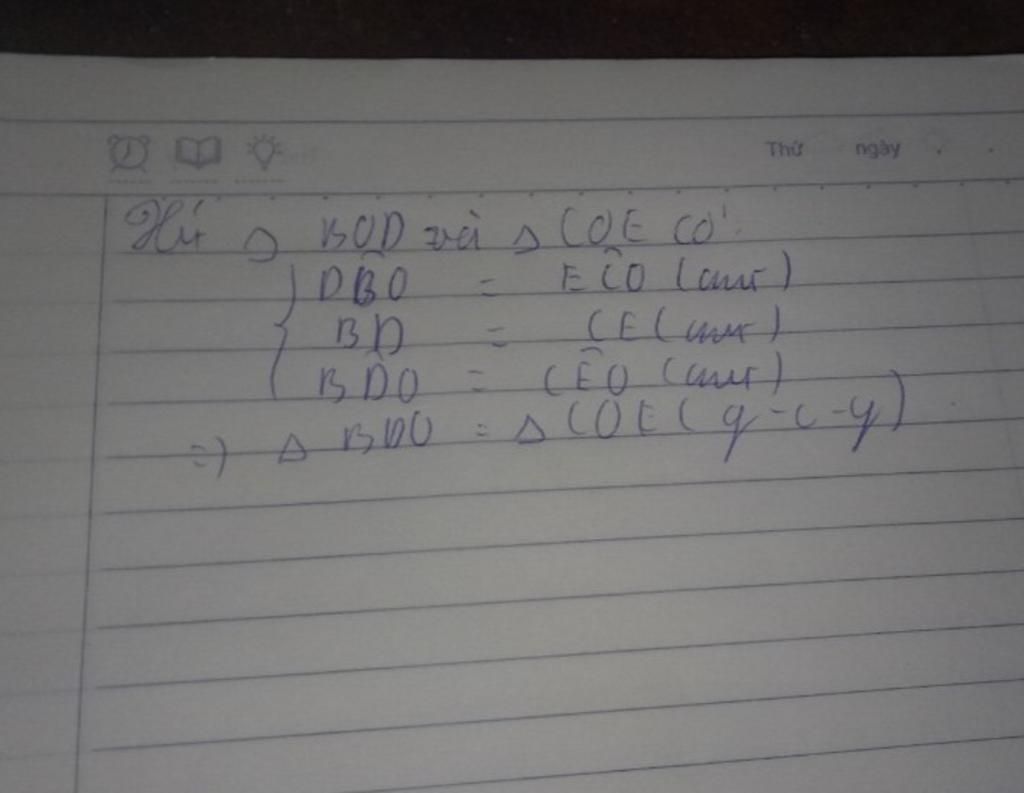 Thứ ngày . .
Xét Δ BOD và Δ COE có:
{ DB̂O = EĈO (cmt)
BD = CE (cmt)
BD̂O = CÊO (cmt)
=) Δ BDO = Δ COE (g-c-g)